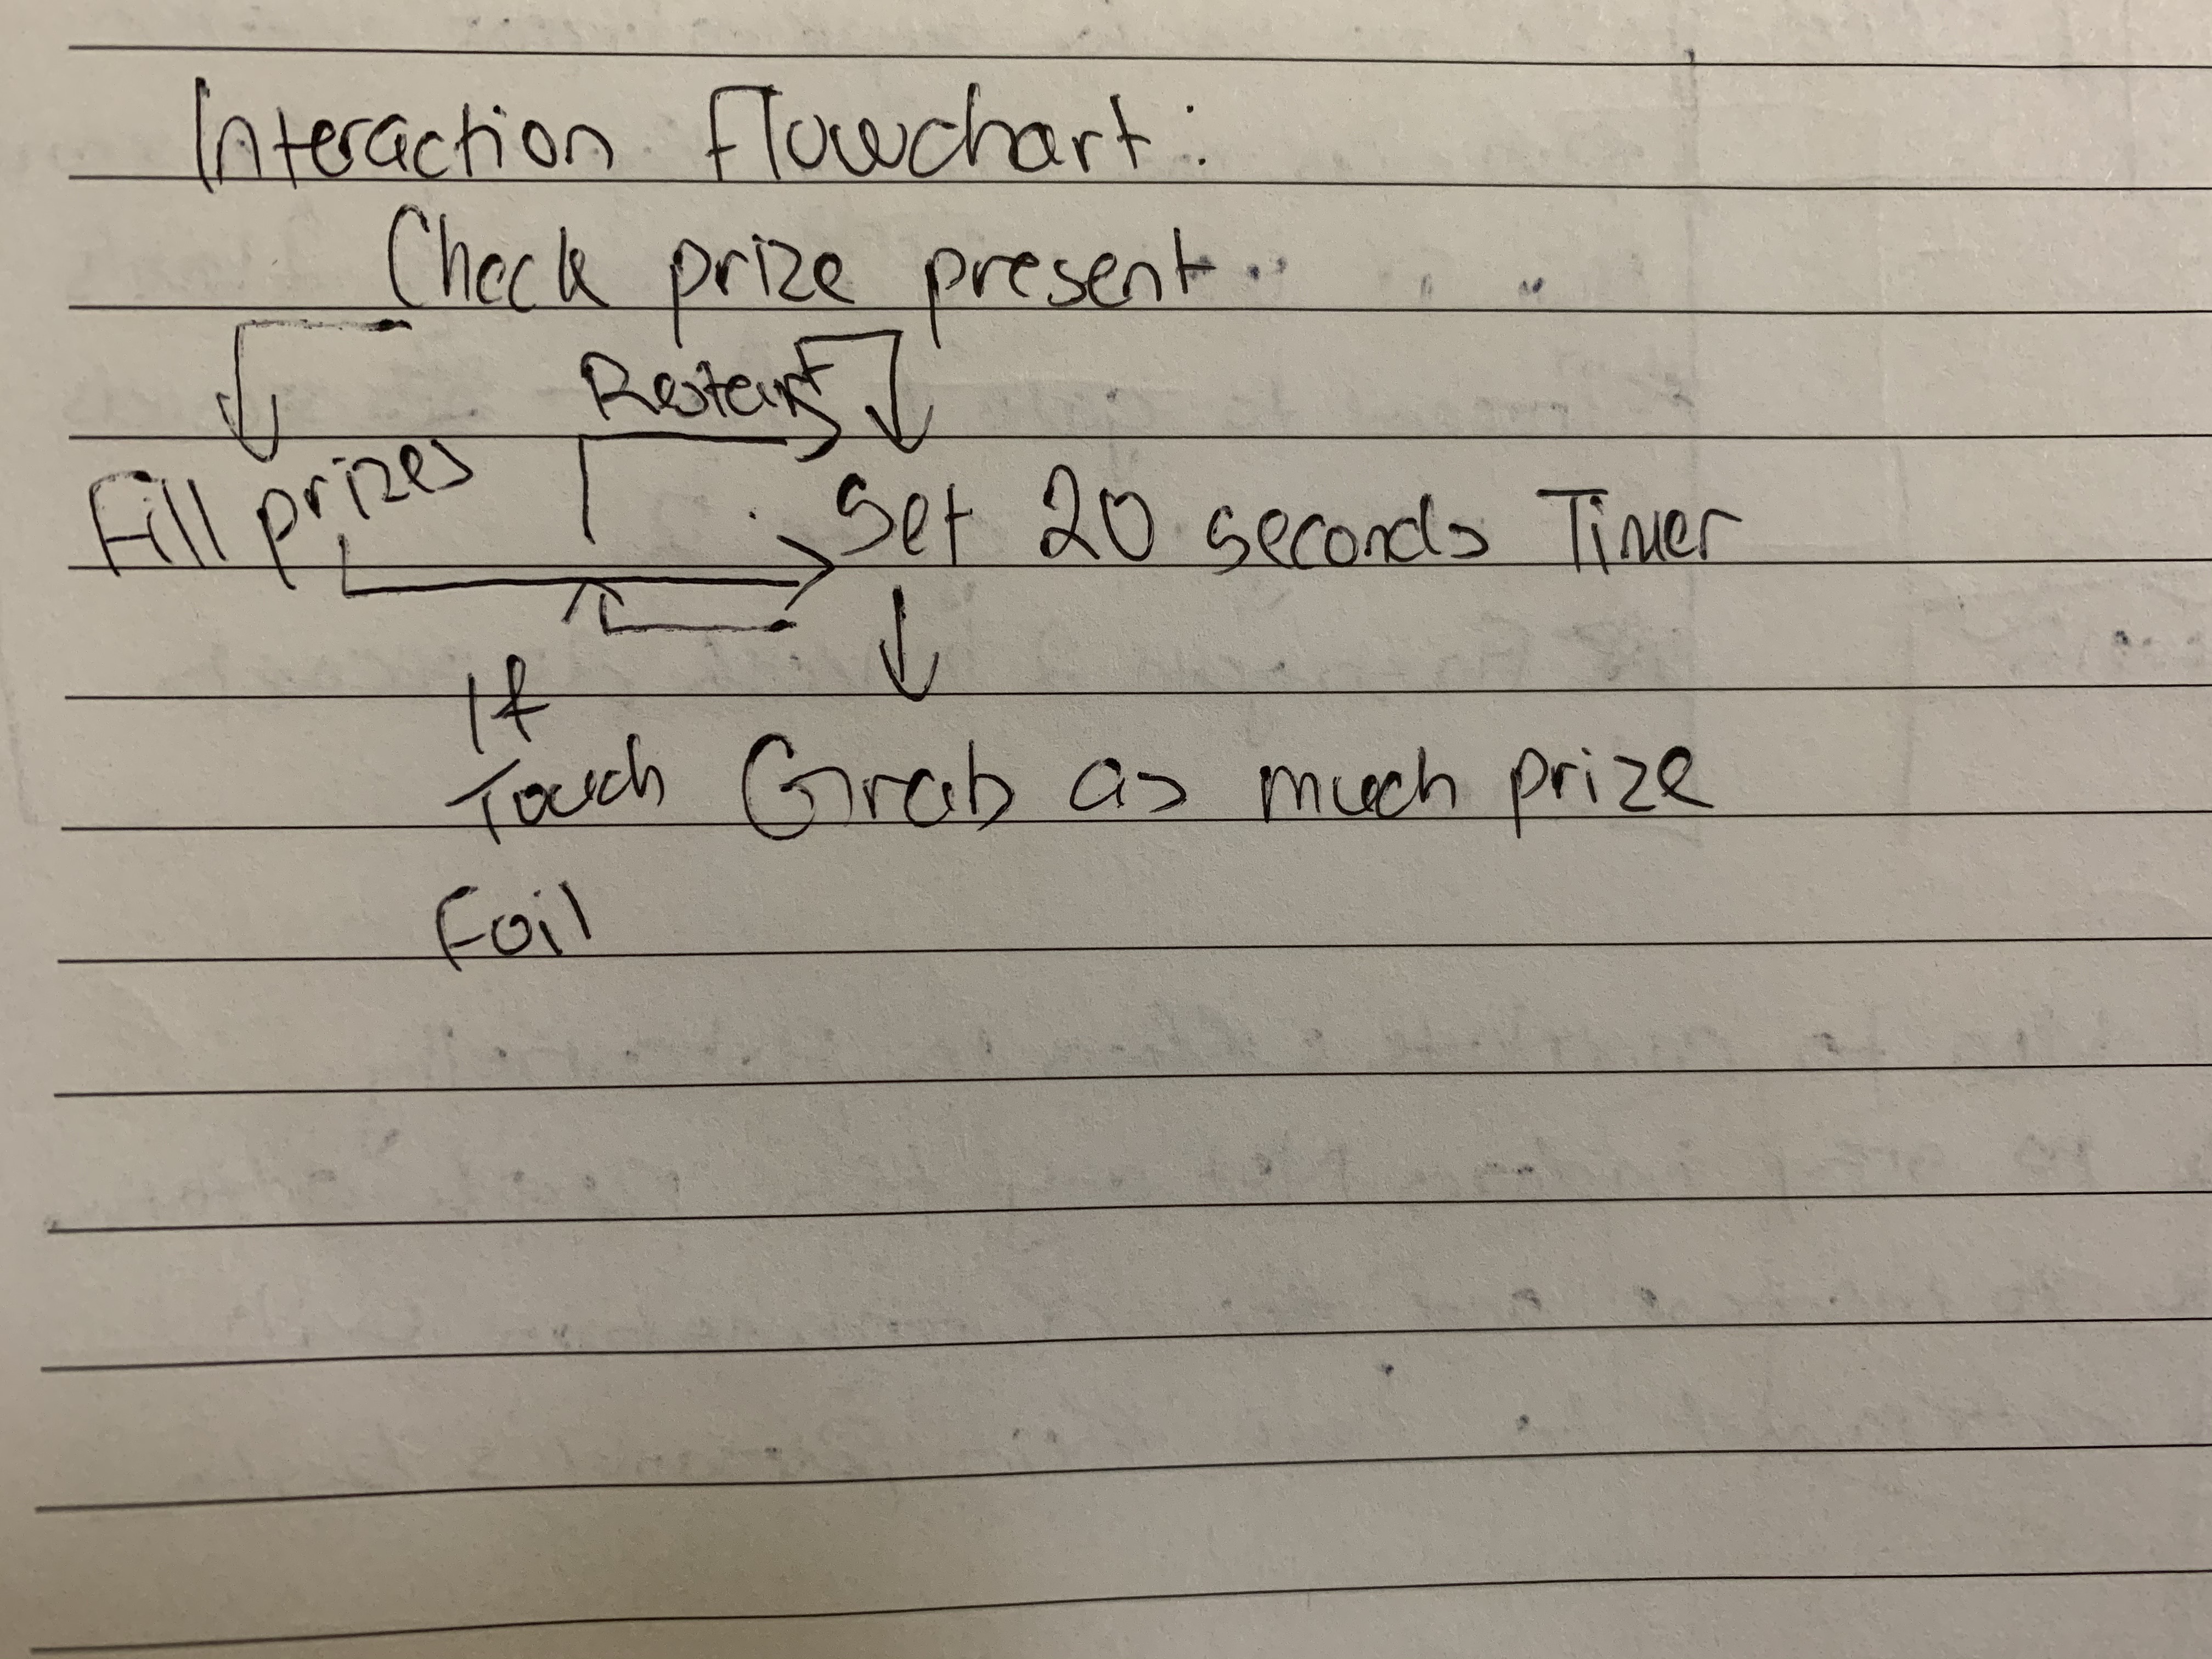 Interaction Flowchart:
Check prize present
Restart
Fill prizes
Set 20 seconds Timer
If
Touch Grab as much prize
Foil